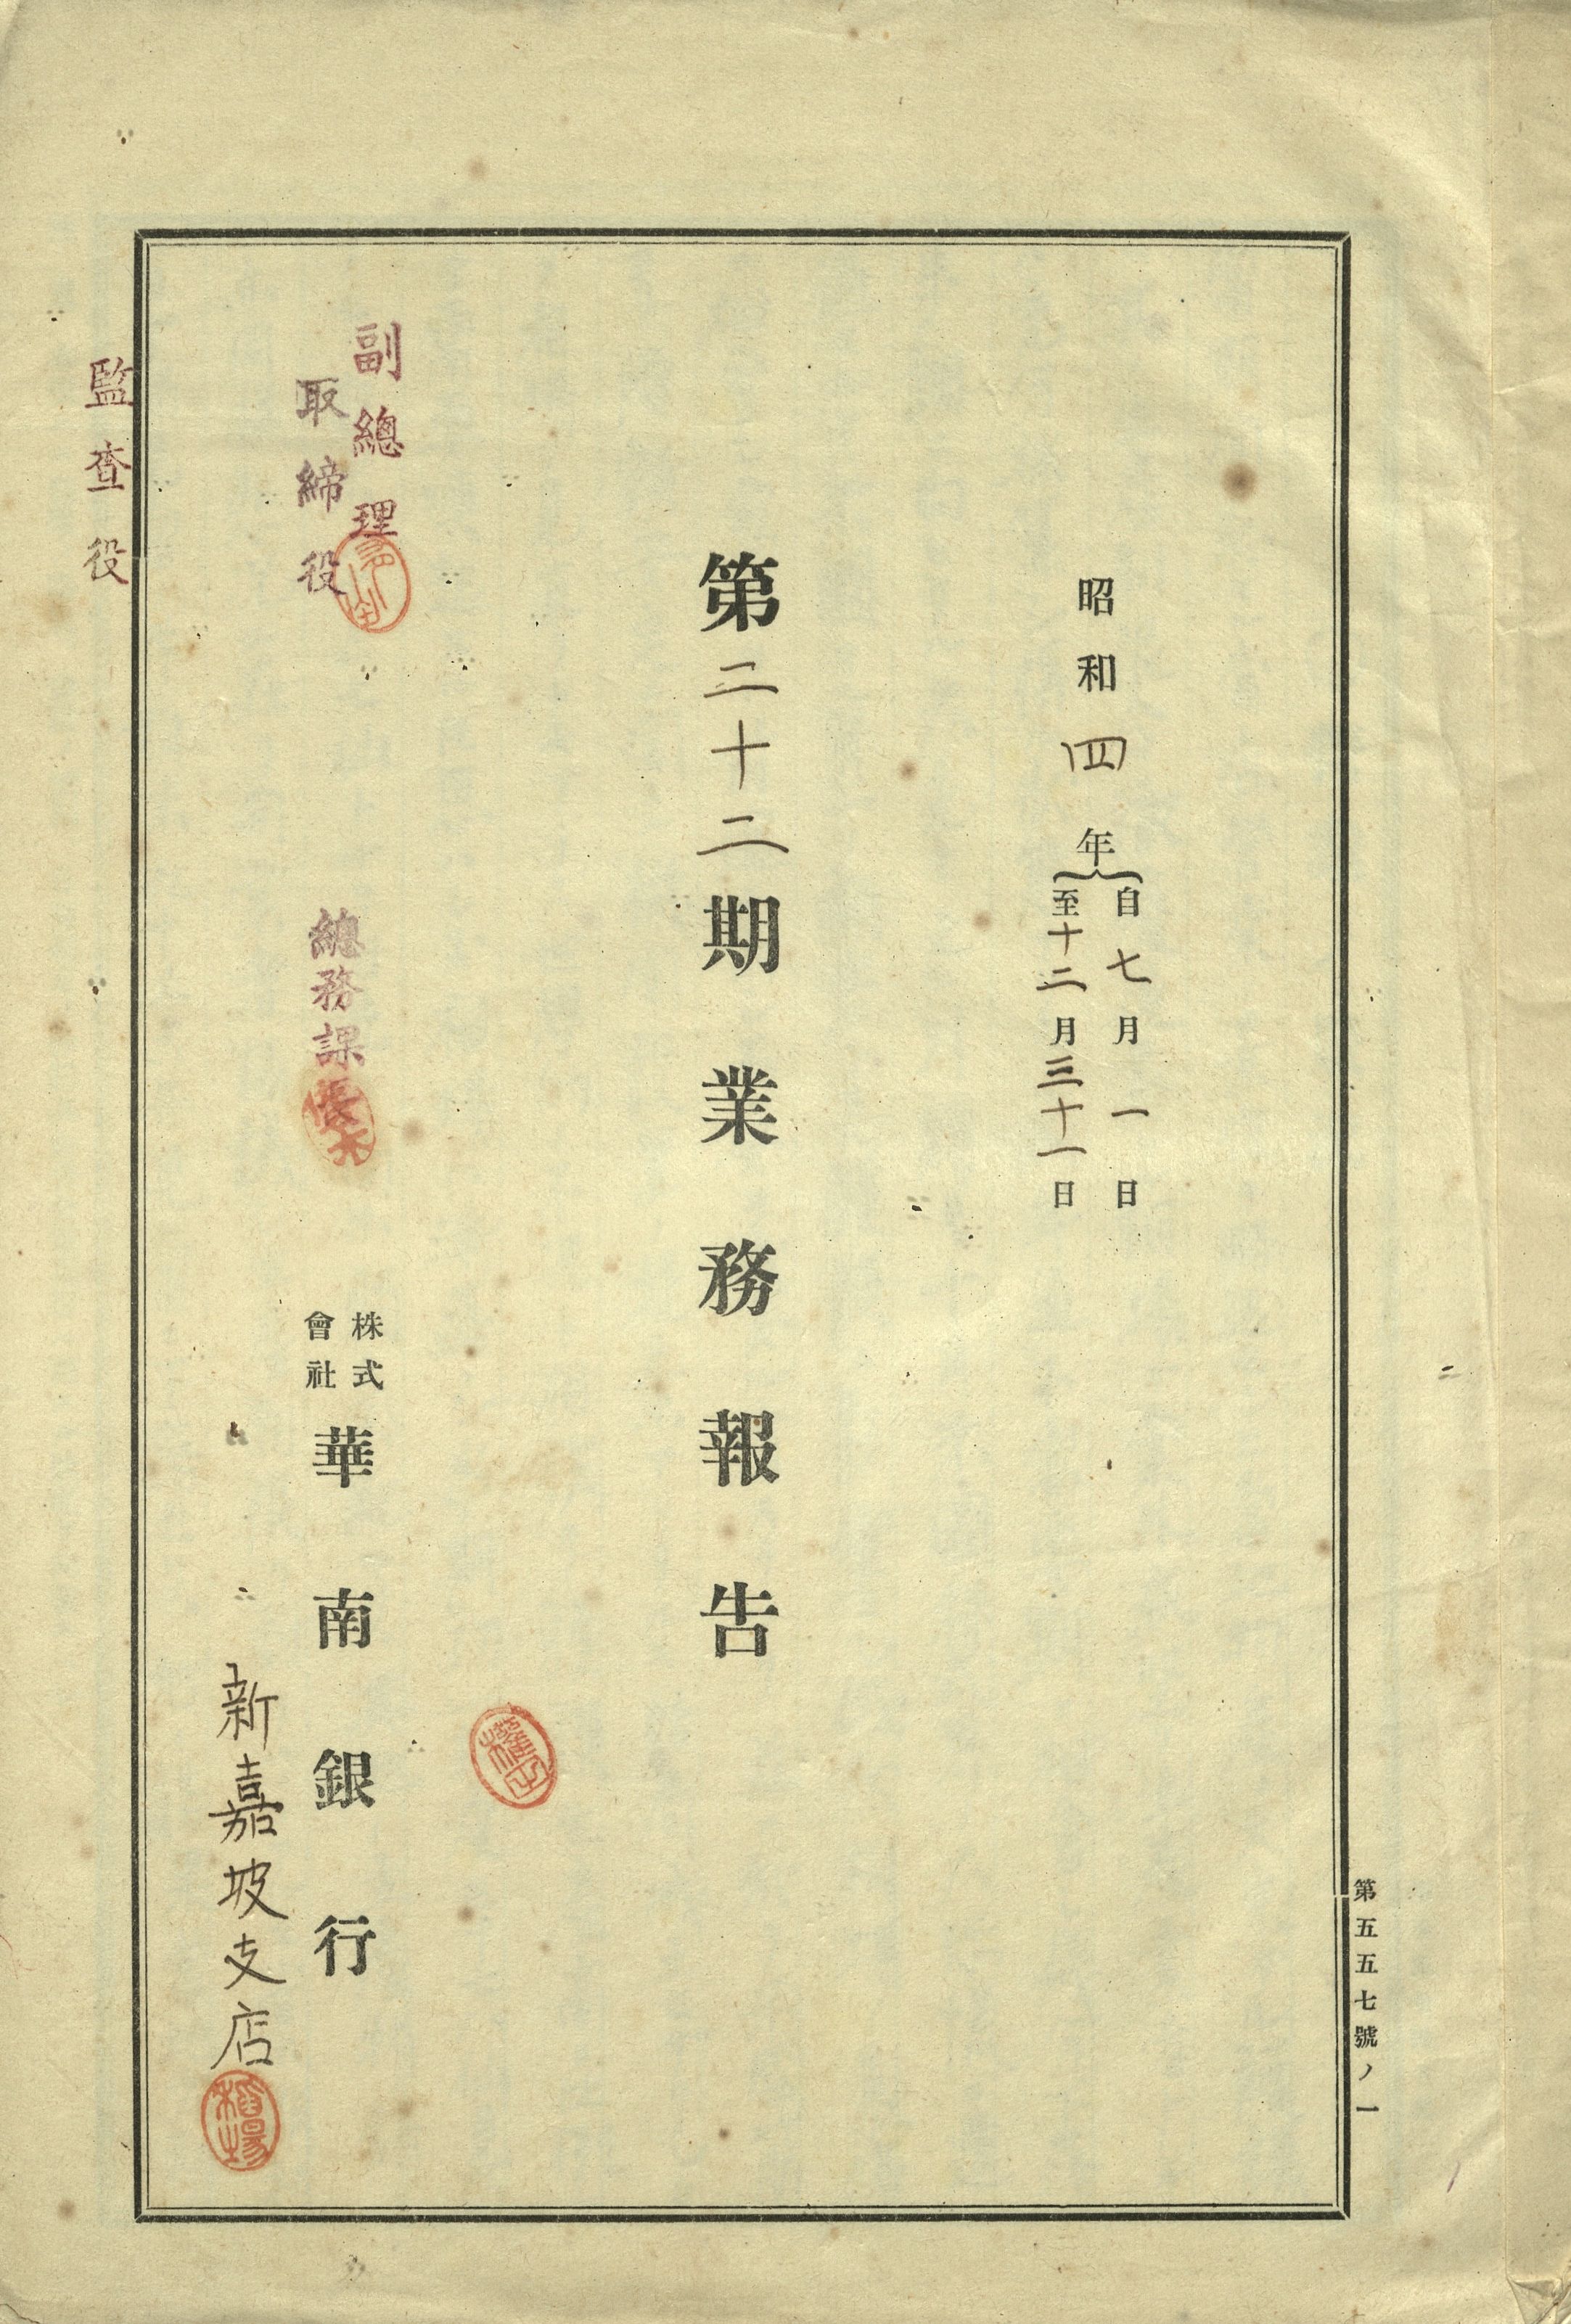 第五五七號ノ一
昭和四年
自七月一日
至十二月三十一日
第二十二期業務報告
株式
會社
華南銀行
新嘉坡支店
稻場
副總理
取締役
總務課長
監查役